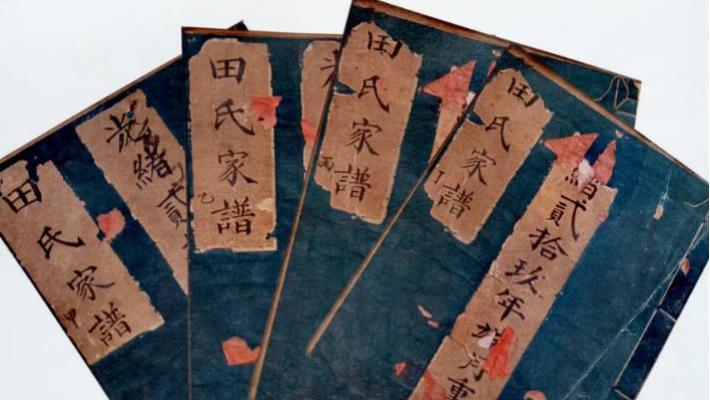 田氏家譜
甲
光緒貳
田氏家譜
乙
光
田氏家譜
丙
田氏家譜
丁
緒貳拾玖年
月重